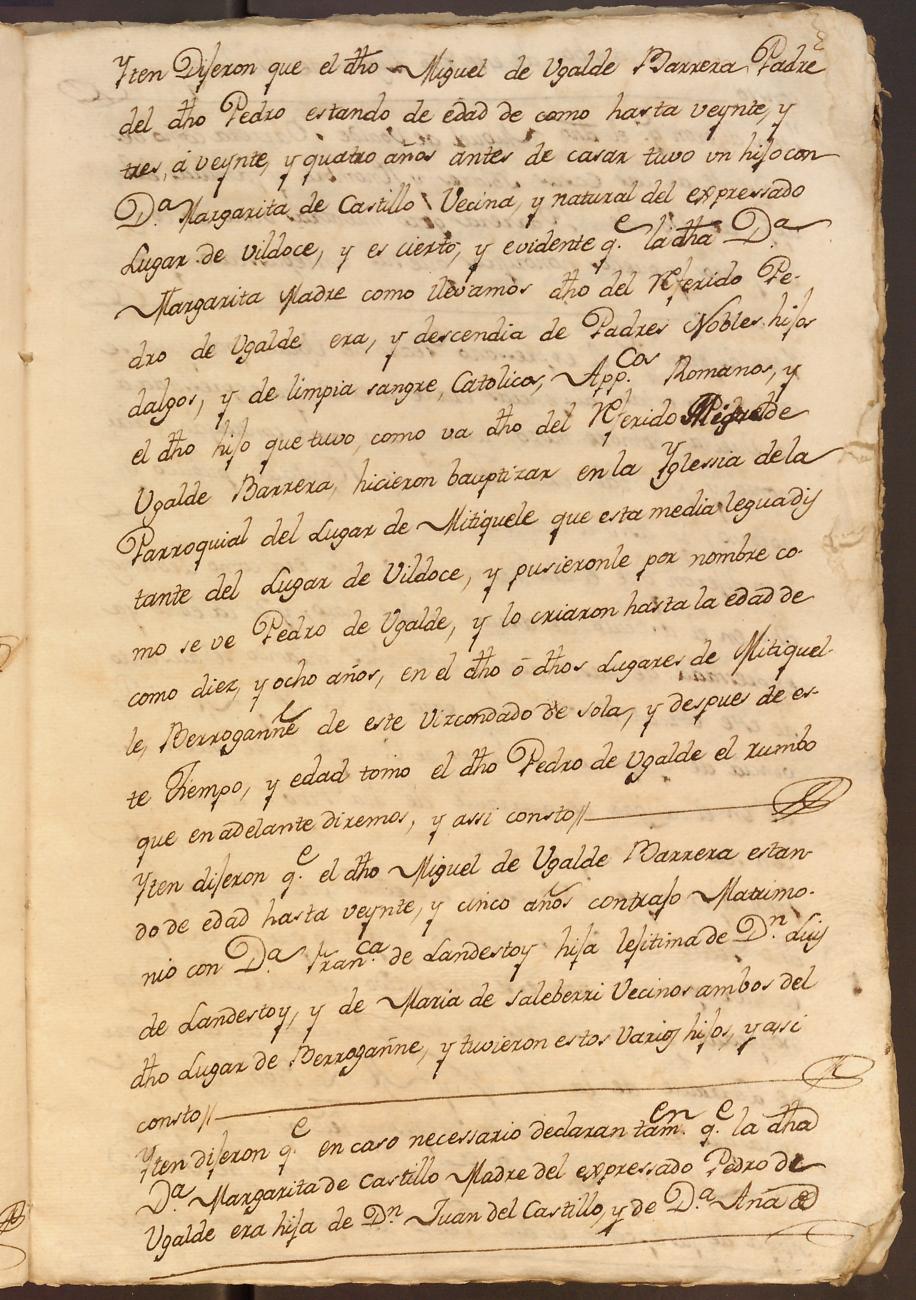 Yten Dijeron que el dho Miguel de Ugalde Barrera Padre
del dho Pedro estando de edad de como hasta veynte, y
tres, á veynte, y quatro años antes de casar tuvo vn hijo con
D.ª Margarita de Castillo Vecina, y natural del expressado
Lugar de Vildoce, y es cierto, y evidente q.e la dha D.ª
Margarita Madre como llevamos dho del Referido Pe-
dro de Ugalde era, y descendia de Padres Nobles hijos
dalgos, y de limpia sangre, Catolicos, App.cos Romanos, y
el dho hijo que tuvo, como va dho del Referido Miguel de
Ugalde Barrera, hicieron bauptizar en la Yglessia de la
Parroquial del Lugar de Mitiquele que esta media legua dis
tante del Lugar de Vildoce, y pusieronle por nombre co-
mo se ve Pedro de Ugalde, y lo criaron hasta la edad de
como diez, y ocho años, en el dho ó dhos Lugares de Mitiquel-
le, Berroganñe de este Vizcondado de Sola, y despues de es-
te Tiempo, y edad tomo el dho Pedro de Ugalde el rumbo
que en adelante diremos, y assi consto//
Yten dijeron q.e el dho Miguel de Ugalde Barrera estan-
do de edad hasta veynte, y cinco años contrajo Matrimo-
nio con D.ª Fran.ca de Landestoy hija lejitima de D.n Luis
de Landestoy, y de Maria de Saleberri Vecinos ambos del
dho Lugar de Berroganne, y tuvieron estos Varios hijos, y asi
consto//
Yten dijeron q.e en caso necessario declaran tam.en q.e la dha
D.ª Margarita de Castillo Madre del expressado Pedro de
Ugalde era hija de D.n Juan del Castillo, y de D.ª Ana